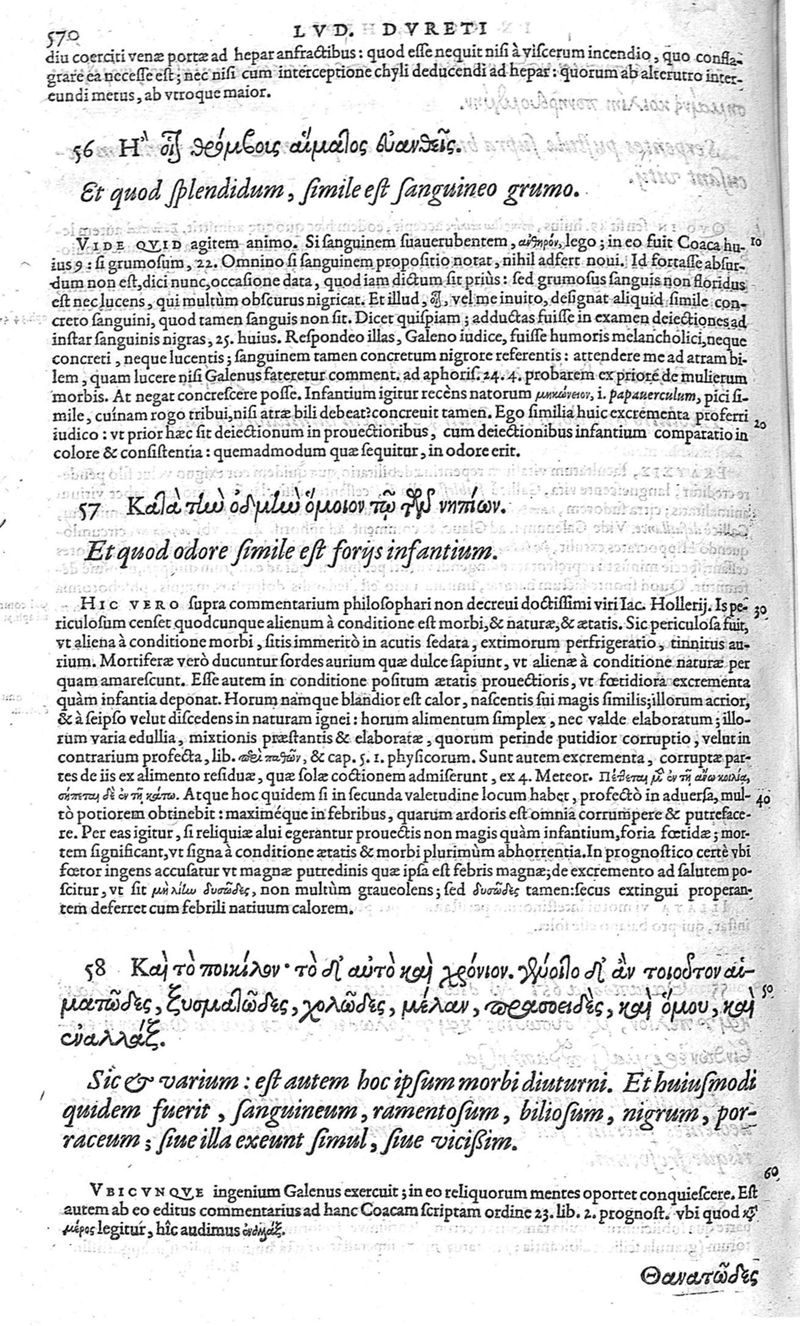 570 LVD. DVRETI
diu coerciti venæ portæ ad hepar anfractibus : quod esse nequit nisi à viscerum incendio, quo confla-
grare ea necesse est ; nec nisi cum interceptione chyli deducendi ad hepar : quorum ab alterutro inter-
eundi metus, ab vtroque maior.
56 Ἢ οἷα θρόμβοις αἵματος εὐανθεῖς.
Et quod splendidum, simile est sanguineo grumo.
VIDE QVID agitem animo. Si sanguinem suauerubentem, ανθηρόν, lego ; in eo fuit Coaca hu- 10
ius 9 : si grumosum, 22. Omnino si sanguinem propositio notat, nihil adfert noui. Id fortasse absur-
dum non est, dici nunc, occasione data, quod iam dictum sit priùs : sed grumosus sanguis non floridus
est nec lucens, qui multùm obscurus nigricat. Et illud, οἷα, vel me inuito, designat aliquid simile con-
creto sanguini, quod tamen sanguis non sit. Dicet quispiam ; adductas fuisse in examen deiectiones ad
instar sanguinis nigras, 25. huius. Respondeo illas, Galeno iudice, fuisse humoris melancholici, neque
concreti, neque lucentis ; sanguinem tamen concretum nigrore referentis : attendere me ad atram bi-
lem, quam lucere nisi Galenus fateretur comment. ad aphoris. 24. 4. probarem ex priore de mulierum
morbis. At negat concrescere posse. Infantium igitur recèns natorum μηκώνειον, i. papauerculum, pici si-
mile, cuínam rogo tribui, nisi atræ bili debeat? concreuit tamen. Ego similia huic excrementa proferri 20
iudico : vt prior hæc sit deiectionum in prouectioribus, cum deiectionibus infantium comparatio in
colore & consistentia : quemadmodum quæ sequitur, in odore erit.
57 Κατὰ τὴν ὀδμὴν ὅμοιον τῷ τῶν νηπίων.
Et quod odore simile est forijs infantium.
HIC VERO supra commentarium philosophari non decreui doctissimi viri Iac. Hollerij. Is pe- 30
riculosum censet quodcunque alienum à conditione est morbi, & naturæ, & ætatis. Sic periculosa fuit,
vt aliena à conditione morbi, sitis immeritò in acutis sedata, extimorum perfrigeratio, tinnitus au-
rium. Mortiferæ verò ducuntur sordes aurium quæ dulce sapiunt, vt alienæ à conditione naturæ per
quam amarescunt. Esse autem in conditione positum ætatis prouectioris, vt fœtidiora excrementa
quàm infantia deponat. Horum namque blandior est calor, nascentis sui magis similis; illorum acrior,
& à seipso velut discedens in naturam ignei : horum alimentum simplex, nec valde elaboratum ; illo-
rum varia edullia, mixtionis præstantis & elaboratæ, quorum perinde putidior corruptio, velut in
contrarium profecta, lib. περὶ παθῶν, & cap. 5. 1. physicorum. Sunt autem excrementa, corruptæ par-
tes de iis ex alimento residuæ, quæ solæ coctionem admiserunt, ex 4. Meteor. Πέττεται μὲν ἐν τῇ ἄνω κοιλίᾳ,
σήπεται δὲ ἐν τῇ κάτω. Atque hoc quidem si in secunda valetudine locum habet, profectò in aduersa, mul- 40
tò potiorem obtinebit : maximéque in febribus, quarum ardoris est omnia corrumpere & putreface-
re. Per eas igitur, si reliquiæ alui egerantur prouectis non magis quàm infantium, foria fœtidæ ; mor-
tem significant, vt signa à conditione ætatis & morbi plurimùm abhorrentia. In prognostico certè vbi
fœtor ingens accusatur vt magnæ putredinis quæ ipsa est febris magnæ; de excremento ad salutem po-
scitur, vt sit μὴ λίην δυσῶδες, non multùm graueolens ; sed δυσῶδες tamen: secus extingui properan-
tem deferret cum febrili natiuum calorem.
58 Καὶ τὸ ποικίλον· τὸ δ' αὐτὸ καὶ χρόνιον. γένοιτο δ' ἂν τοιοῦτον αἱ-
ματῶδες, ξυσματῶδες, χολῶδες, μέλαν, πρασοειδὲς, καὶ ὁμοῦ, καὶ 50
ἐναλλάξ.
Sic & varium : est autem hoc ipsum morbi diuturni. Et huiusmodi
quidem fuerit, sanguineum, ramentosum, biliosum, nigrum, por-
raceum ; siue illa exeunt simul, siue vicißim.
60
VBICVNQVE ingenium Galenus exercuit ; in eo reliquorum mentes oportet conquiescere. Est
autem ab eo editus commentarius ad hanc Coacam scriptam ordine 23. lib. 2. prognost. vbi quod κατὰ
μέρος legitur, hîc audimus ἐναλλάξ.
Θανατῶδες